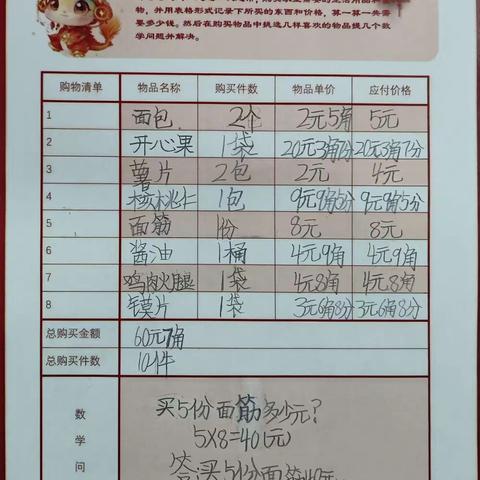 物，并用表格形式记录下所买的东西和价格，算一算一共需
要多少钱。然后在购买物品中挑选几样喜欢的物品提几个数
学问题并解决。
购物清单 物品名称 购买件数 物品单价 应付价格
1 面包 2个 2元5角 5元
2 开心果 1袋 20元3角7分 20元3角7分
3 薯片 2包 2元 4元
4 核桃仁 1包 9元9角5分 9元9角5分
5 面筋 1份 8元 8元
6 酱油 1桶 4元9角 4元9角
7 鸡肉火腿 1袋 4元8角 4元8角
8 馍片 1袋 3元6角8分 3元6角8分
总购买金额 60元7角
总购买件数 10件
数学问
买5份面筋多少元？
5×8=40(元)
答:买5份面筋40元